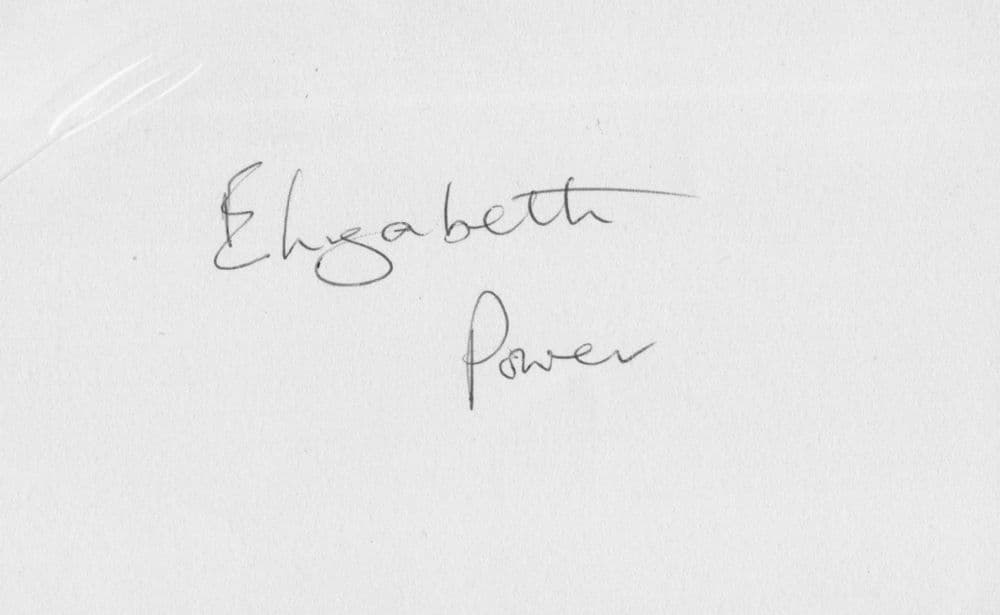 Elizabeth
Power